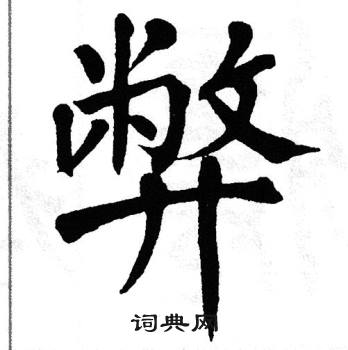 弊
词典网